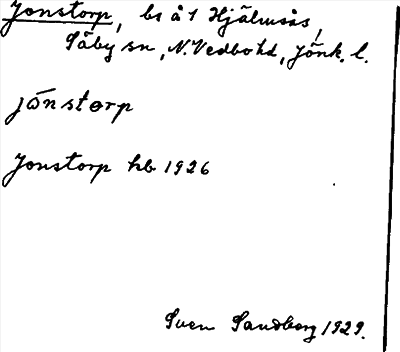 Jonstorp, bs å 1 Hjälmsås,
Säby sn, N. Vedbo hd, Jönk. l.
jōnstorp
Jonstorp hb 1926
Sven Sandberg 1929.